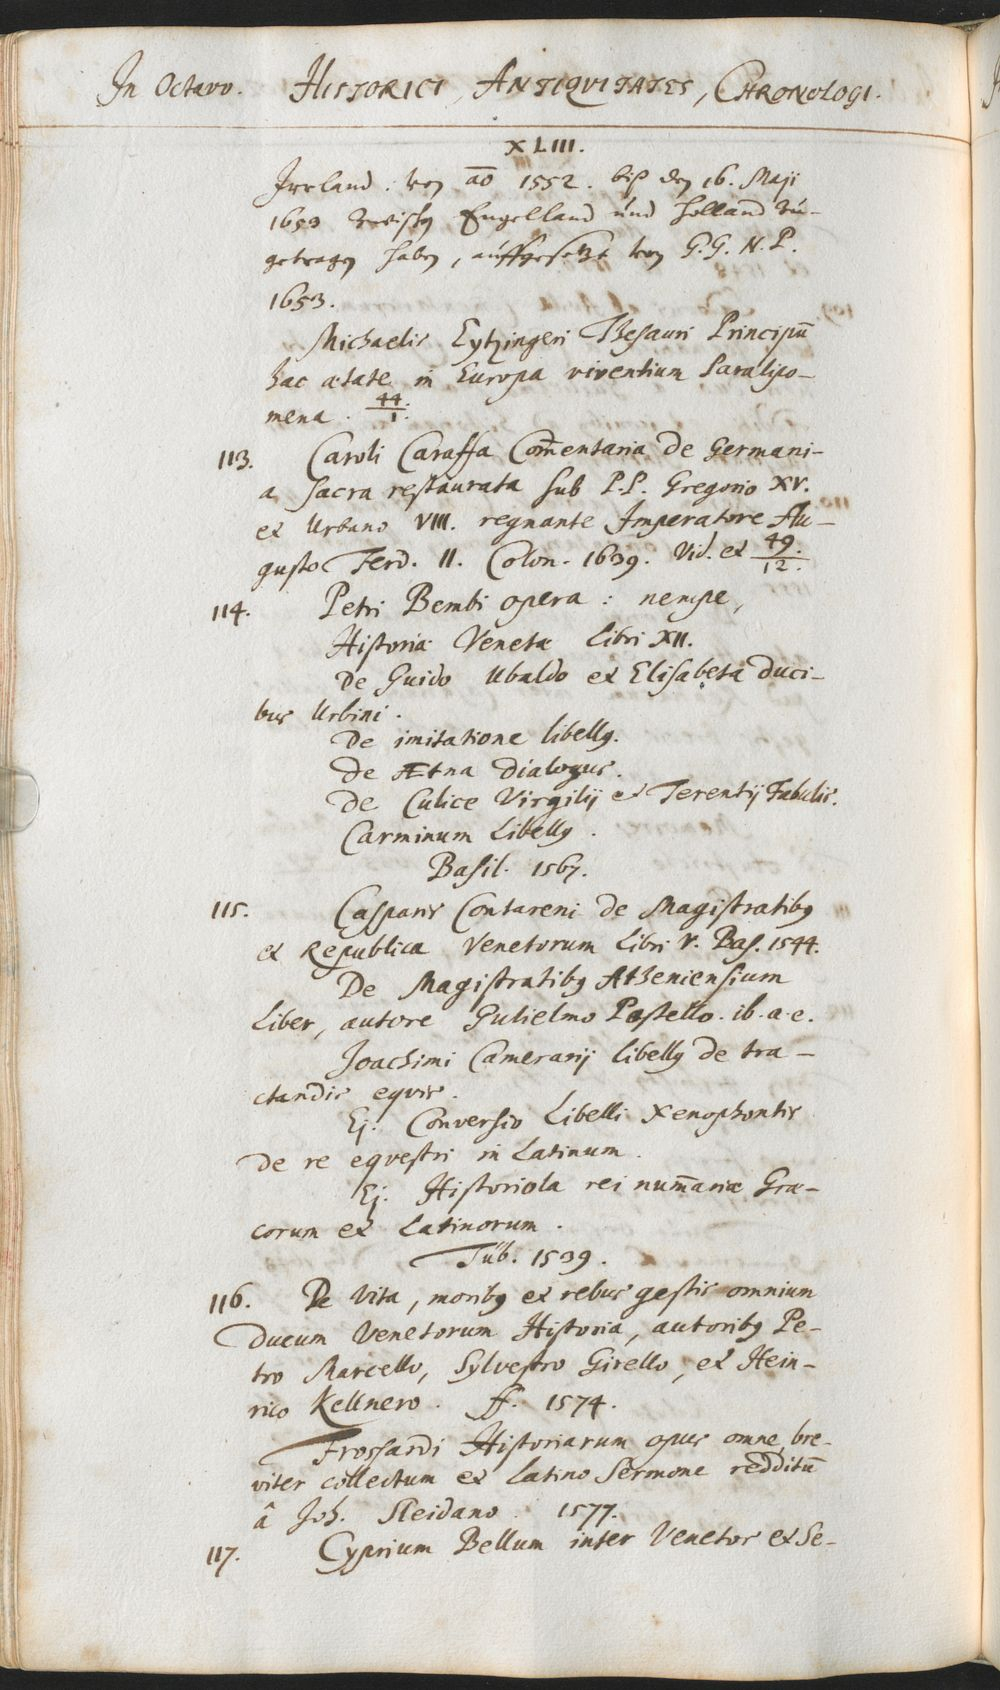 In Octavo. HISTORICI, ANTIQVITATES, CHRONOLOGI.
XLIII.
Irrland: von aō 1552. biß den 16. Maji
1653 zwischen Engelland und Holland zu-
getragen haben, auffgesetzt von G. G. N. P.
1653.
Michaelis Eytzingeri Thesauri Principū
hac ætate in Europa viventium Paralipo-
mena. 44/1.
113. Caroli Caraffa Com̄entaria de Germani-
a sacra restaurata sub P.P. Gregorio XV.
et Urbano VIII. regnante Imperatore Au-
gusto Ferd. II. Colon. 1639. Vid. et 49/12.
114. Petri Bembi opera: nempe,
Historiæ Venetæ Libri XII.
De Guido Ubaldo et Elisabeta Duci-
bus Urbini.
De imitatione libellꝰ.
De Ætna dialogus.
De Culice Virgilij et Terentij Fabulis.
Carminum Libellꝰ.
Basil. 1567.
115. Casparis Contareni de Magistratibꝰ
et Republica Venetorum Libri V. Bas. 1544.
De Magistratibꝰ Atheniensium
Liber, autore Gulielmo Postello. ib. a. e.
Joachimi Camerarij libellꝰ de tra-
ctandis equis.
Ej. Conversio Libelli Xenophontis
de re equestri in Latinum.
Ej. Historiola rei num̄ariæ Græ-
corum et Latinorum.
Tüb. 1539.
116. De Vita, moribꝰ et rebus gestis omnium
Ducum Venetorum Historia, autoribꝰ Pe-
tro Marcello, Sylvestro Girello, et Hein-
rico Kellnero. ff. 1574.
Frossardi Historiarum opus omne bre-
viter collectum et Latino Sermone redditū
â Joh. Sleidano. 1577.
117. Cyprium Bellum inter Venetos et Se-